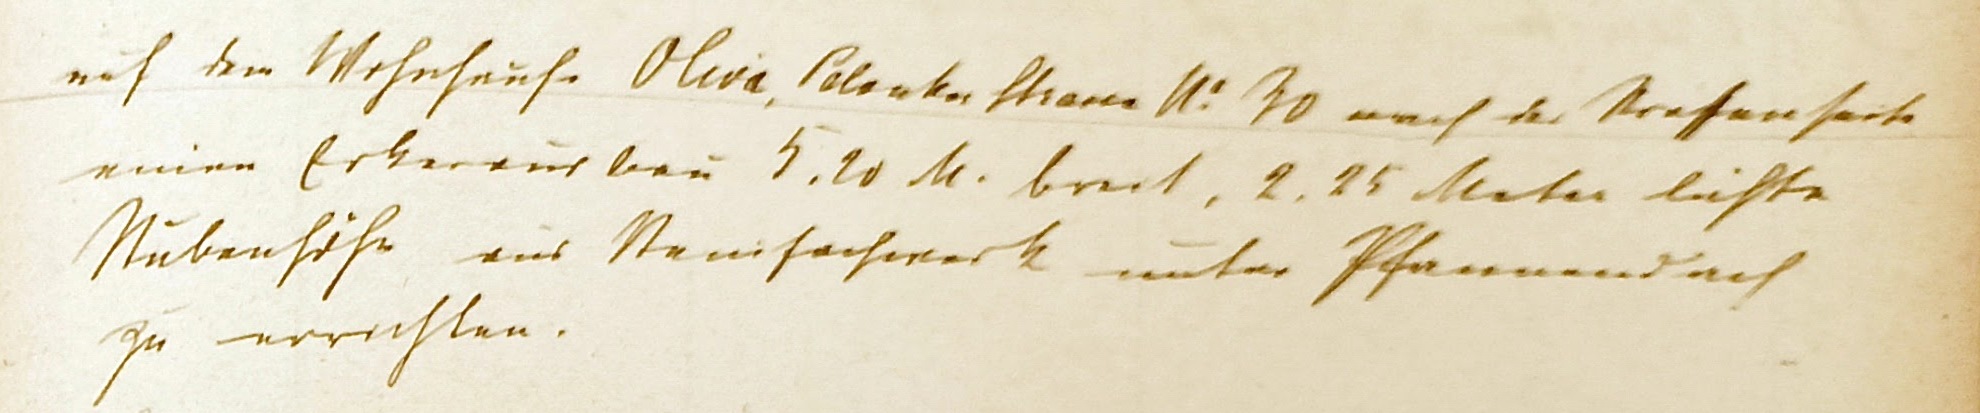 auf dem Wohnhause Oliva, Pelonker Strasse No 30 nach der Straßenseite
einen Erkerausbau 5,20 M. breit, 2,25 Meter lichte
Stubenhöhe aus Steinfachwerk unter Pfannendach
zu errichten.